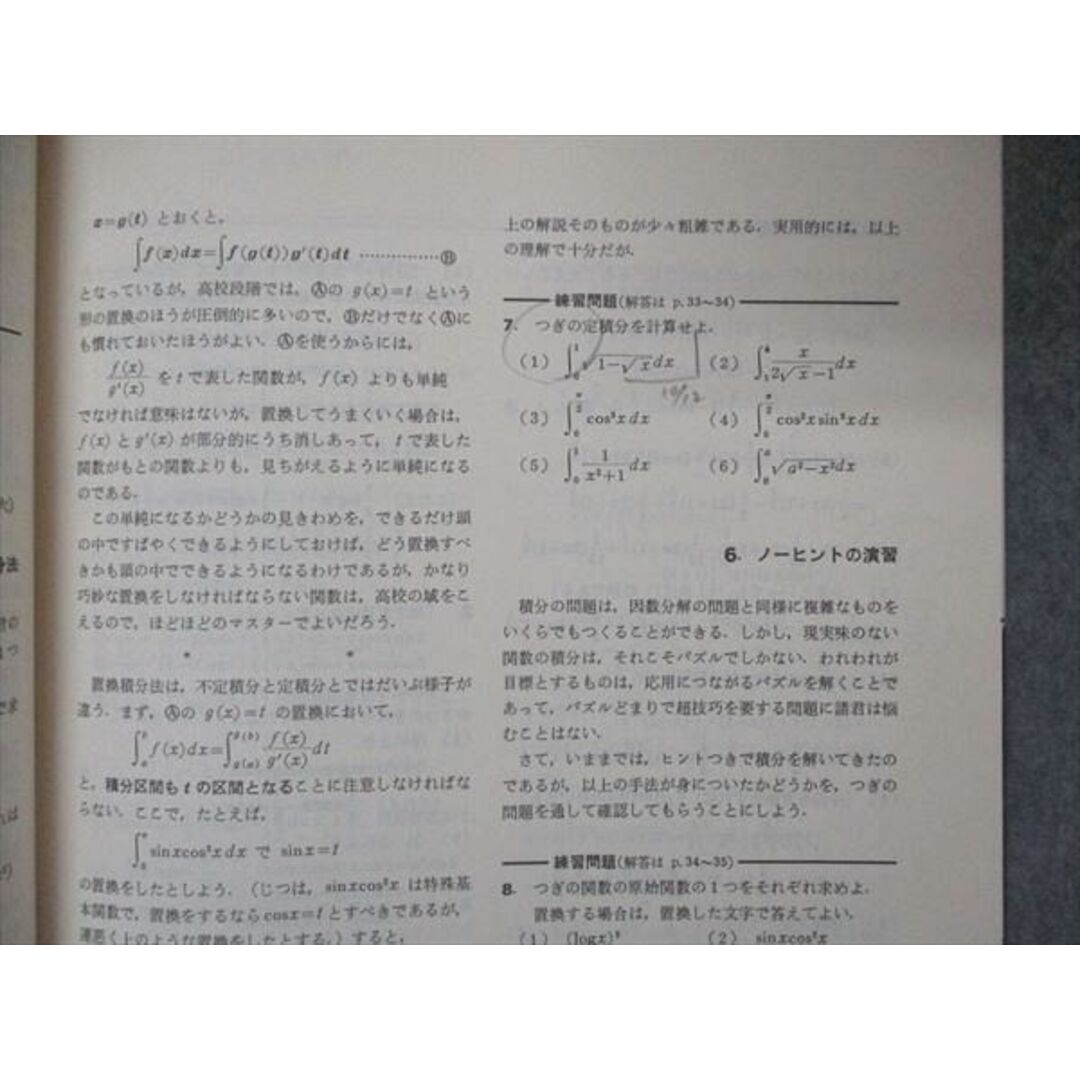 x=g(t) とおくと，
∫f(x)dx=∫f(g(t))g′(t)dt ……………Ⓑ
となっているが，高校段階では，Ⓐの g(x)=t という
形の置換のほうが圧倒的に多いので，ⒷだけでなくⒶに
も慣れておいたほうがよい．Ⓐを使うからには，
f(x)/g′(x) をtで表した関数が，f(x) よりも単純
でなければ意味はないが，置換してうまくいく場合は，
f(x) と g′(x) が部分的にうち消しあって，t で表した
関数がもとの関数よりも，見ちがえるように単純になる
のである．
この単純になるかどうかの見きわめを，できるだけ頭
の中ですばやくできるようにしておけば，どう置換すべ
きかも頭の中でできるようになるわけであるが，かなり
巧妙な置換をしなければならない関数は，高校の域をこ
えるので，ほどほどのマスターでよいだろう．
＊ ＊
置換積分法は，不定積分と定積分とではだいぶ様子が
違う．まず，Ⓐの g(x)=t の置換において，
∫f(x)dx=∫f(x)/g′(x) dt
と，積分区間も t の区間となることに注意しなければな
らない．ここで，たとえば，
で sinx=t
の置換をしたとしよう．（じつは，
は特殊基
本関数で，置換をするなら cosx=t とすべきであるが，
運悪く上のような置換をしたとする．）すると，
上の解説そのものが少々粗雑である．実用的には，以上
の理解で十分だが．
練習問題(解答は p.33～34)
7. つぎの定積分を計算せよ．
(1) ∫₀¹√(1−√x)dx (2) ∫₁⁴ x/(2√x−1) dx
(3) (4)
(5) ∫₀¹ 1/(x²+1) dx (6) ∫₀ᵃ√(a²−x²)dx
10/12
6. ノーヒントの演習
積分の問題は，因数分解の問題と同様に複雑なものを
いくらでもつくることができる．しかし，現実味のない
関数の積分は，それこそパズルでしかない．われわれが
目標とするものは，応用につながるパズルを解くことで
あって，パズルどまりで超技巧を要する問題に諸君は悩
むことはない．
さて，いままでは，ヒントつきで積分を解いてきたの
であるが，以上の手法が身についたかどうかを，つぎの
問題を通して確認してもらうことにしよう．
練習問題(解答は p.34～35)
8. つぎの関数の原始関数の1つをそれぞれ求めよ．
置換する場合は，置換した文字で答えてよい．
(1) (2)